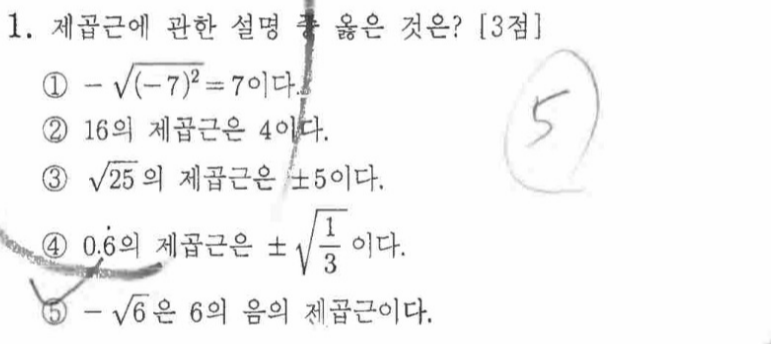 1. 제곱근에 관한 설명 중 옳은 것은? [3점]
① $-\sqrt{(-7)^2}=7$이다.
② 16의 제곱근은 4이다.
③ $\sqrt{25}$의 제곱근은 ±5이다.
④ $0.\dot{6}$의 제곱근은 $\pm\sqrt{\frac{1}{3}}$이다.
⑤ $-\sqrt{6}$은 6의 음의 제곱근이다.
5